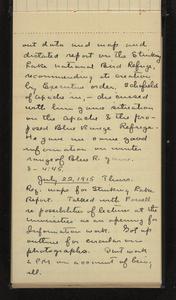 out data and map and
dictated report on the Stinking
Lake National Bird Refuge,
recommending its creation
by Executive order. Scholefield
of Apache in, - discussed
with him game situation
on the Apache & the pro-
posed Blue Range Refuge.
He gave me some good
information on winter
range of Blue R. game.
8 - 4:45.
July 22, 1915 Thurs.
Reg. maps for Stinking Lake
Report. Talked with Powell
re possibilities of lectures at the
universities as an opening for
Information work. Got up
outline for circular on
photographs. Quit work
2 P.M. on account of being
ill.